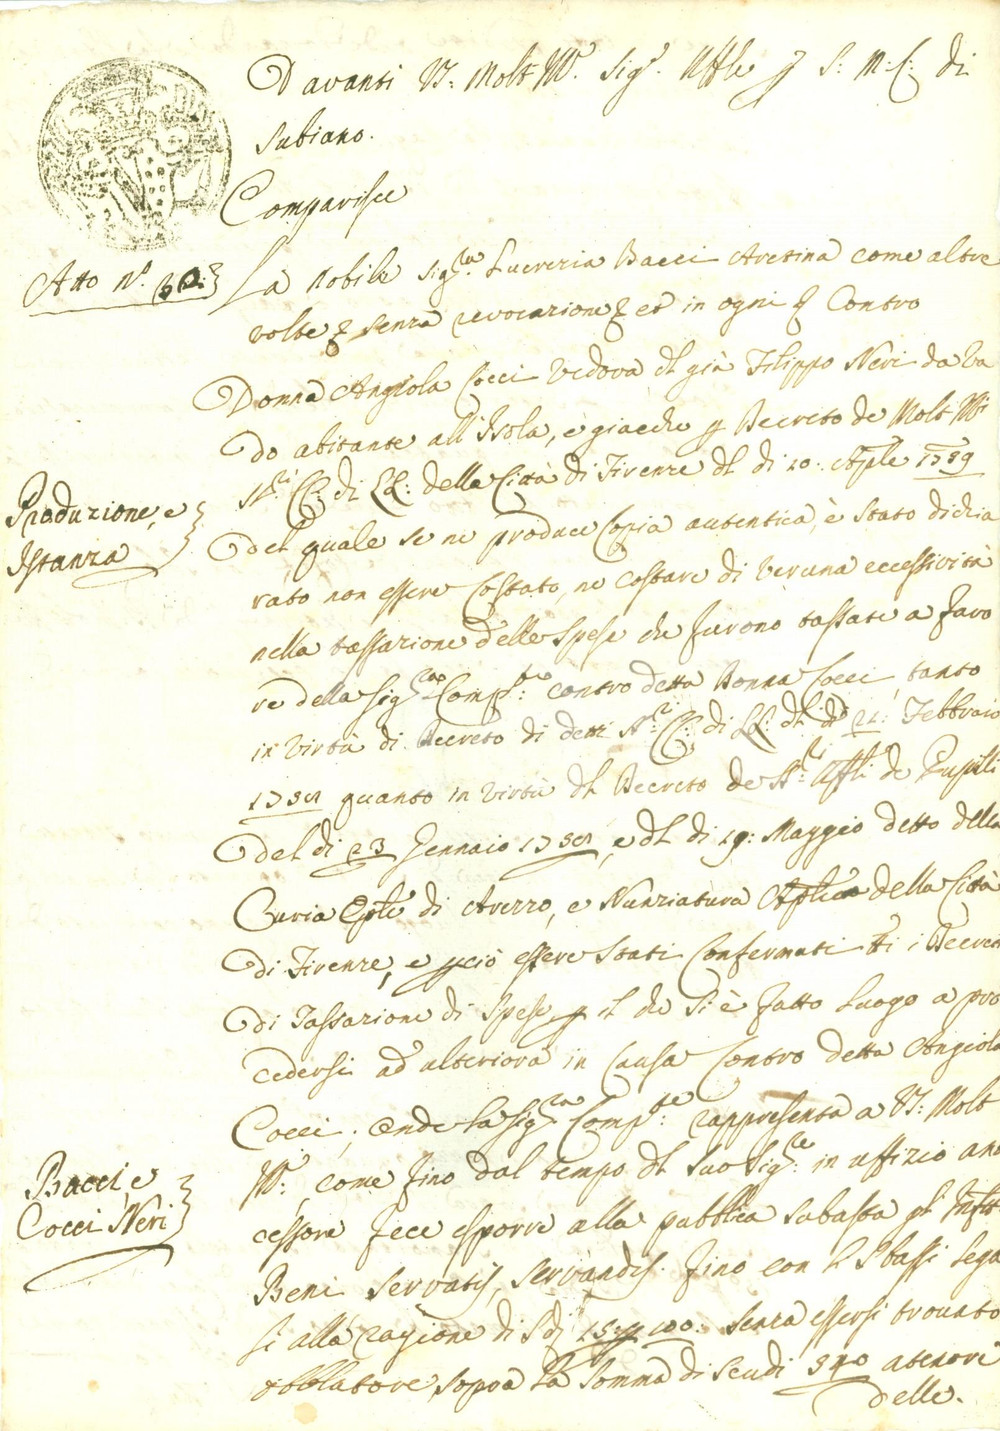 Davanti VS: Molt Ill.e Sig.r Uffle p S: M: C: di
Subiano.
Comparisce
Atto n.°
La Nobile Sig.ra Lucrezia Bacci Aretina come altre
volte senza revocazione et in ogni Contro
Donna Angiola Cocci Vedova dl già Filippo Neri da Va
do abitante all'Isola, e giacche p Decreto de Molt Ill
SS.ri CC: di LL: della Città di Firenze dl di 10. Aple 1789
Produzione, e
Istanza
del quale se ne produce Copia autentica, è stato dichia
rato non essere Costato, ne costare di veruna eccessività
nella tassazione delle spese che furono tassate a favo
re della Sig.ra Comp.te contro detta Donna Cocci, tanto
in virtù di Decreto di detti SS.ri CC: di LL: dl dì 21: Febbraio
quanto in virtù dl Decreto de SS.ri Uffli de Pupilli
del di 23 Gennaio, e dl di 19: Maggio detto della
Curia Eple di Arezzo, e Nunziatura Aplica della Città
di Firenze, e pciò essere Stati Confermati tti i Decreti
di Tassazione di Spese p il che si è fatto luogo a pro
cedersi ad ulteriora in Causa Contro detta Angiola
Cocci, onde la Sig.ra Comp.te rappresenta a VS: Molt
Ill.e, come fino dal tempo dl suo Sig.re in uffizio ante
Bacci, e
Cocci Neri
cessore fece esporre alla pubblica subasta gl' Infti
Beni servatis, servandis. fino con i Sbassi lega
li alla ragione di Sdi 15: p 100: senza essersi trovato
obblatore sopra la Somma di Scudi atenori
delle.